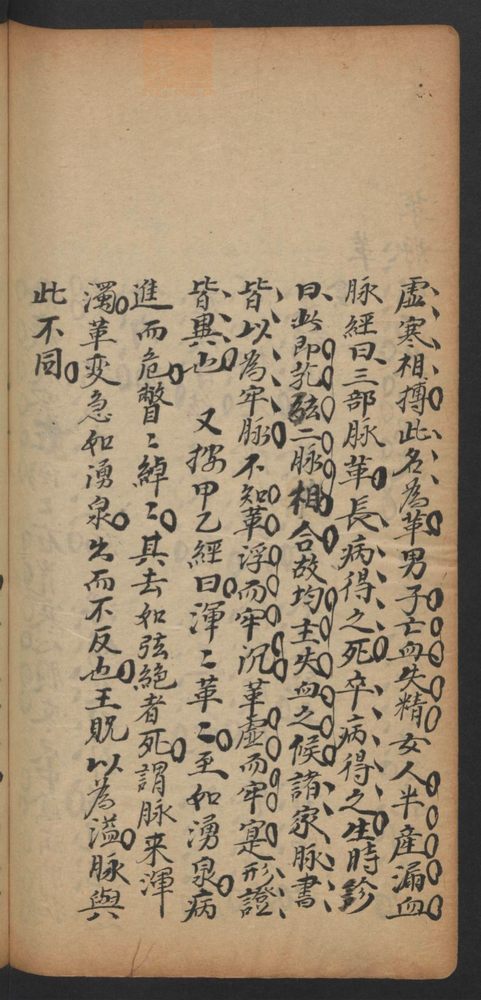 虛寒相搏此名為革男子亡血失精女人半產漏血
脉經曰三部脉革長病得之死卒病得之生時診
曰此即芤弦二脉相合故均主失血之候諸家脉書
皆以為牢脉不知革浮而牢沉革虛而牢寔形證
皆異也 又按甲乙經曰渾〻革〻至如湧泉病
進而危弊〻綽〻其去如弦絕者死謂脉来渾
濁革变急如湧泉出而不反也王貺以為溢脉與
此不同